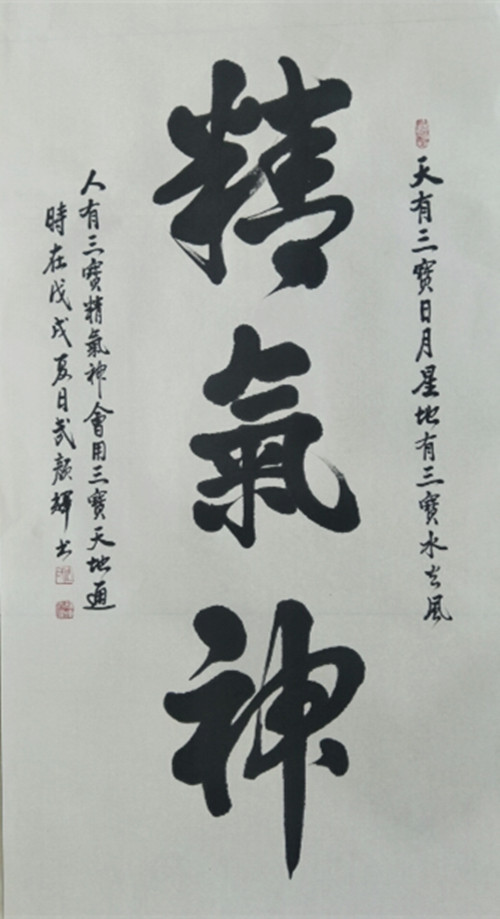 天有三寶日月星地有三寶水火風
精氣神
人有三寶精氣神會用三寶天地通
時在戊戌夏日武顏輝书